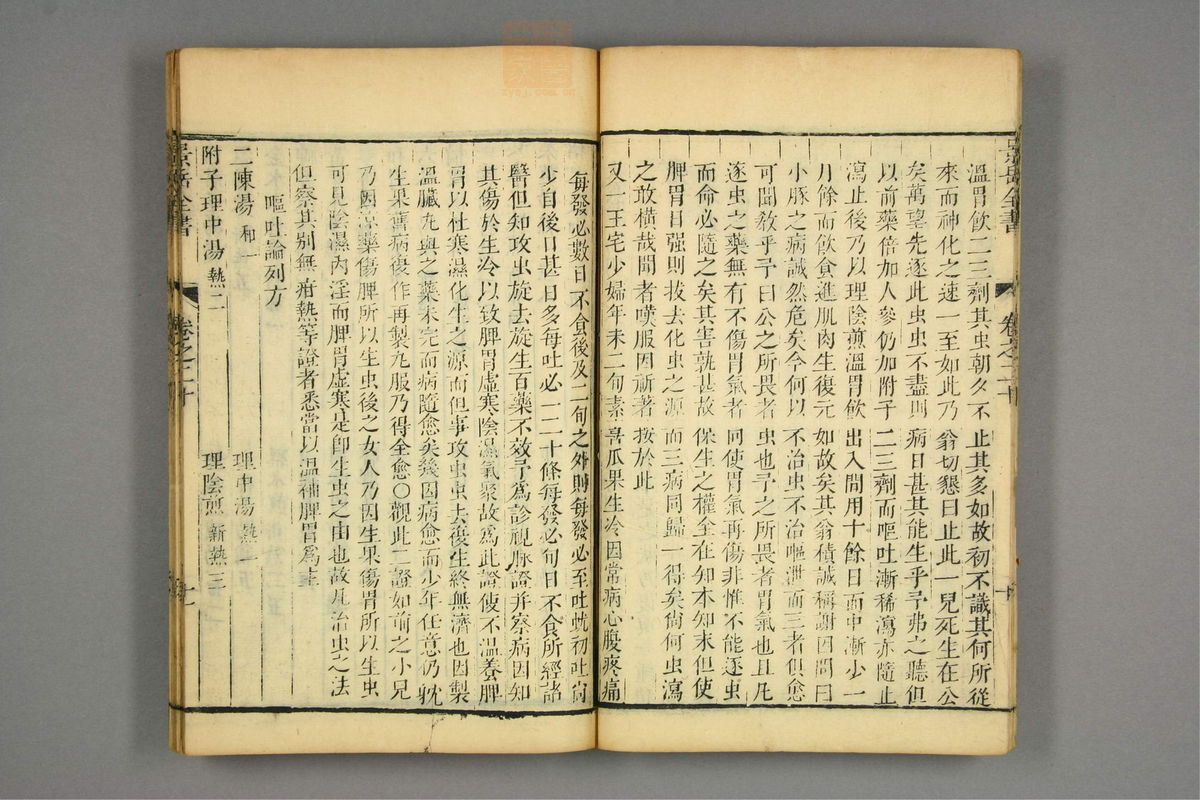 溫胃飲二三劑其虫朝夕不止其多如故初不識其何所從
來而神化之速一至如此乃翁切懇曰止此一兒死生在公
矣萬望先逐此虫虫不盡則病日甚其能生乎予弗之聽但
以前藥倍加人參仍加附子二三劑而嘔吐漸稀瀉亦隨止
瀉止後乃以理陰煎溫胃飲出入間用十餘日而虫漸少一
月餘而飲食進肌肉生復元如故矣其翁積誠稱謝因問曰
小豚之病誠然危矣今何以不治虫不治嘔泄而三者俱愈
可聞教乎予曰公之所畏者虫也予之所畏者胃氣也且凡
逐虫之藥無有不傷胃氣者向使胃氣再傷非惟不能逐虫
而命必隨之矣其害孰甚故保生之權全在知本知末但使
脾胃日强則拔去化虫之源而三病同歸一得矣尚何虫瀉
之敢橫哉聞者嘆服因新著按於此
又一王宅少婦年未二旬素喜瓜果生冷因常病心腹疼痛
每發必數日不食後及二旬之外則每發必至吐蚘初吐尚
少自後日甚日多每吐必一二十條每發必旬日不食所經諸
醫但知攻虫旋去旋生百藥不效予爲診視脉證并察病因知
其傷於生冷以致脾胃虛寒陰濕氣聚故爲此證使不溫養脾
胃以杜寒濕化生之源而但事攻虫虫去復生終無濟也因製
溫臟丸與之藥未完而病隨愈矣後因病愈而少年任意仍躭
生果舊病復作再製丸服乃得全愈○觀此二證如前之小兒
乃因涼藥傷脾所以生虫後之女人乃因生果傷胃所以生虫
可見陰濕內淫而脾胃虛寒是卽生虫之由也故凡治虫之法
但察其别無疳熱等證者悉當以溫補脾胃爲主
嘔吐論列方
二陳湯 和一 理中湯 熱一
附子理中湯 熱二 理陰煎 新熱三
景岳全書 卷之二十